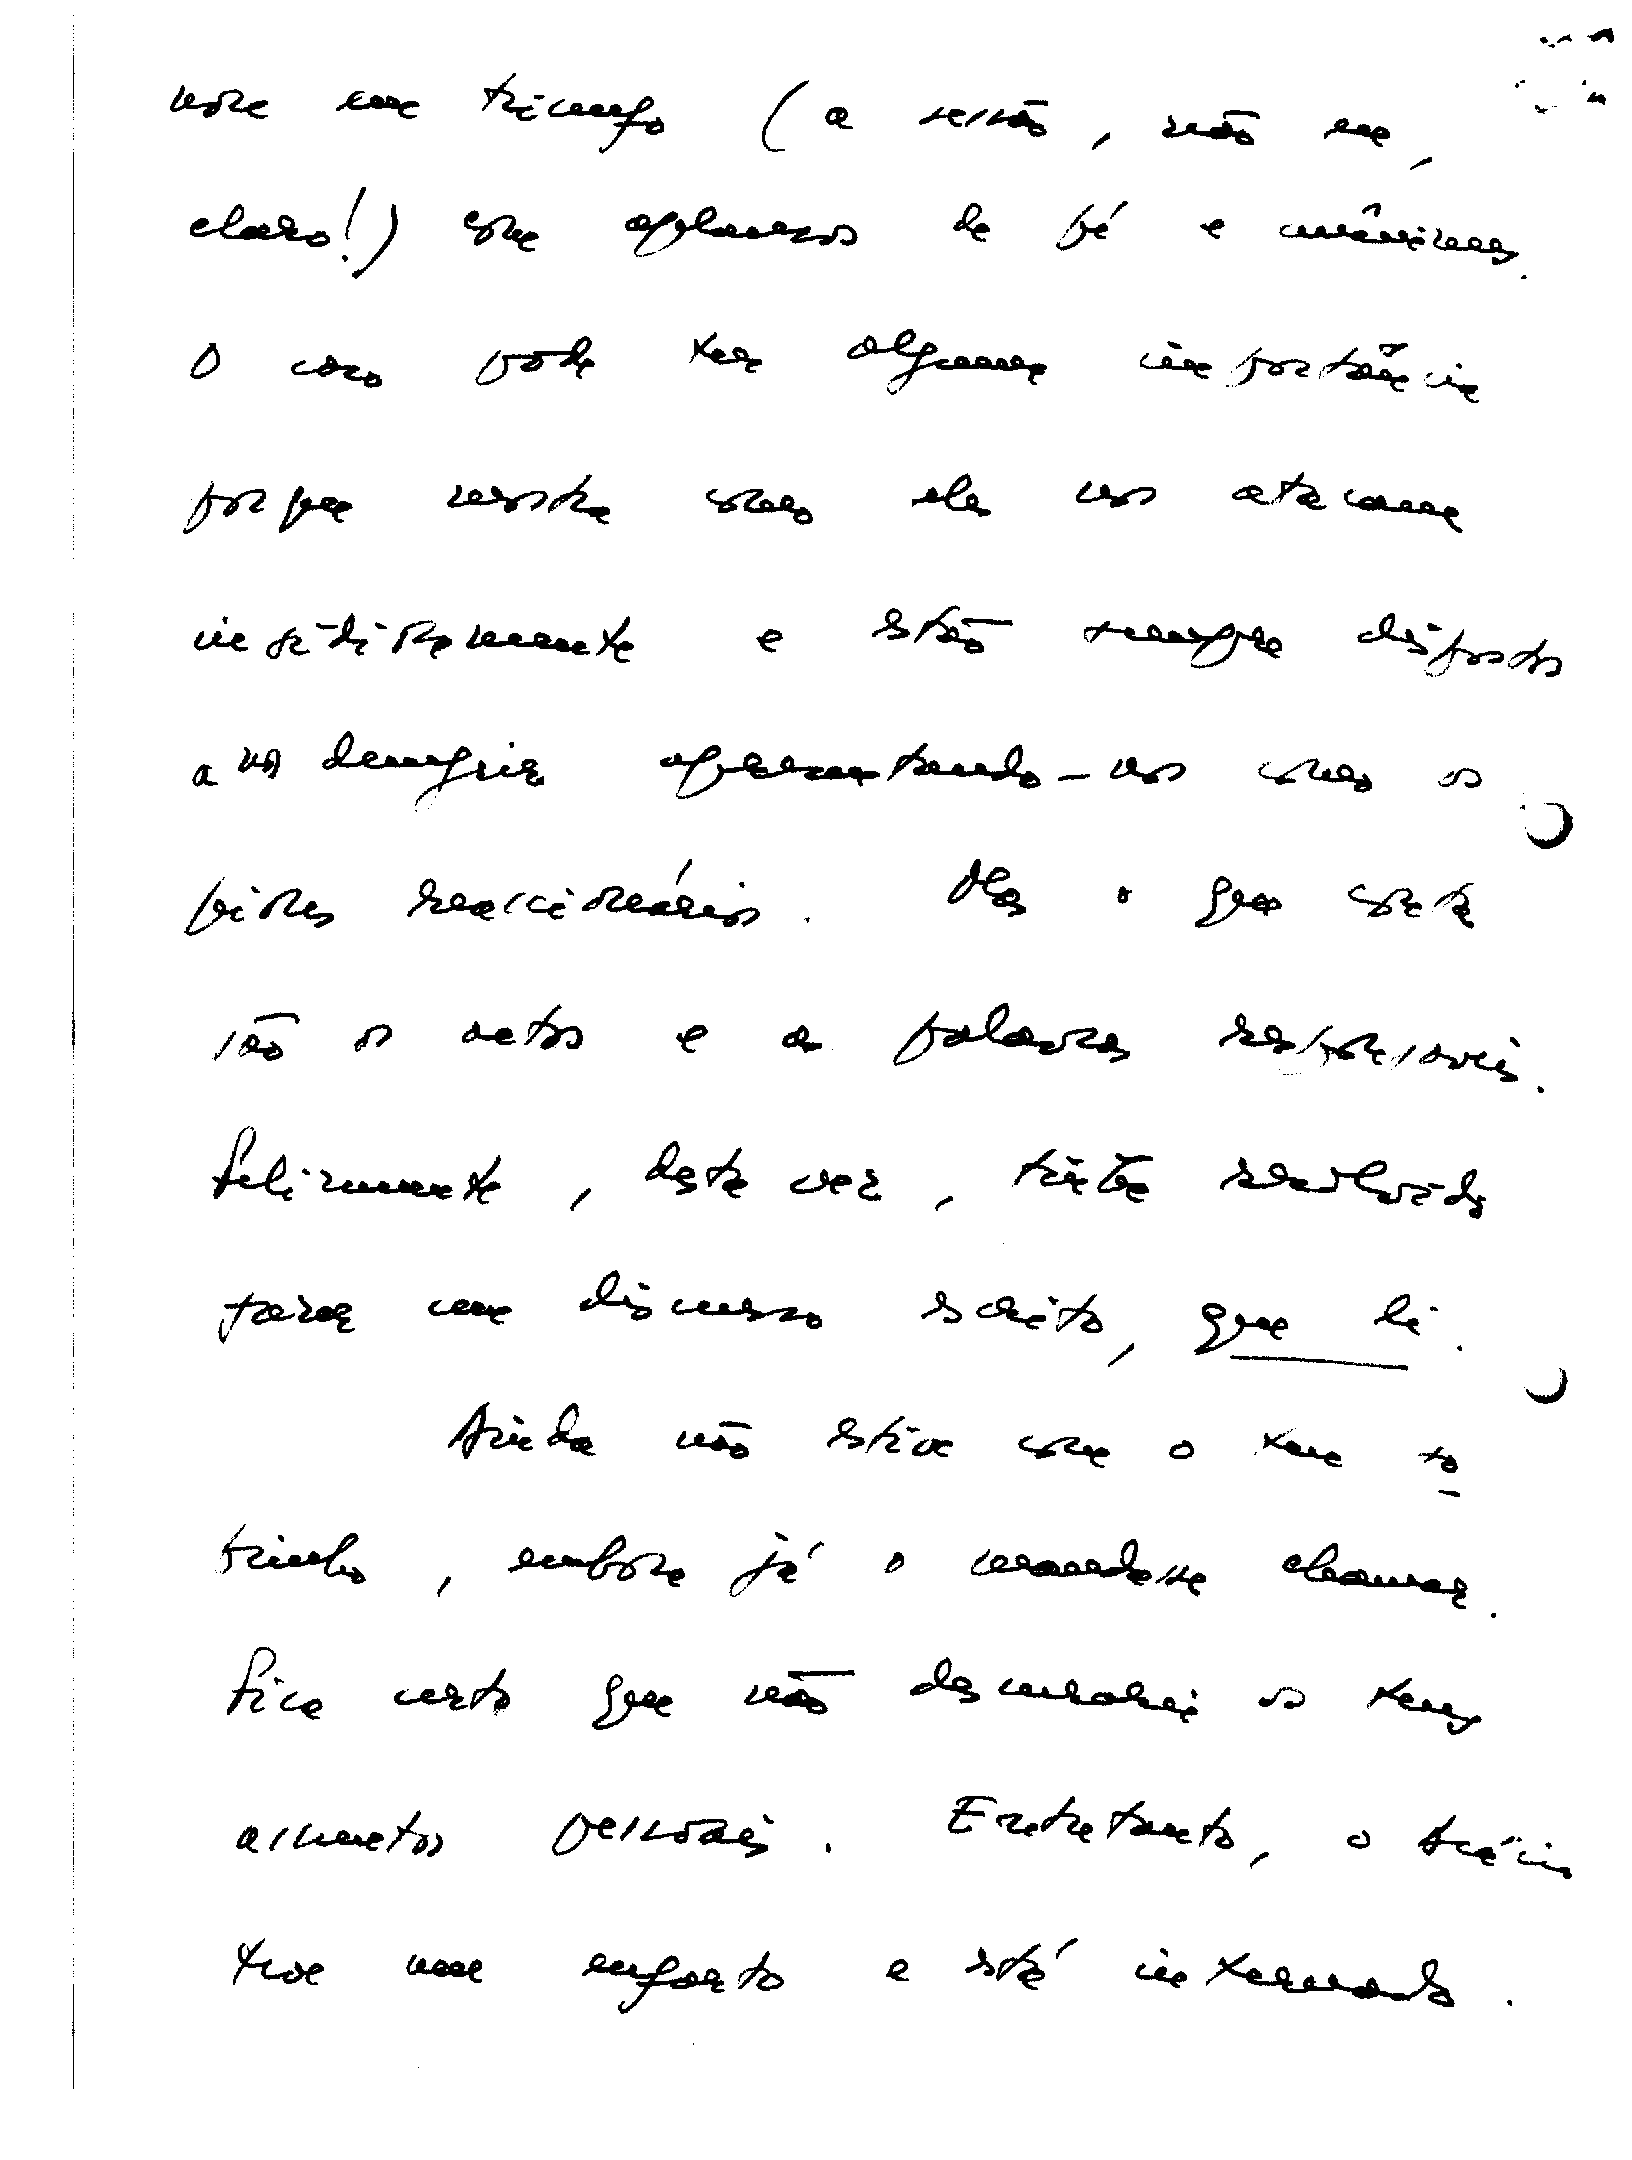 nou em triunfo (a sessão, não eu,
claro!) com aplausos de pé e unânimes.
O caso pode ter alguma importância
porque mostra como eles nos atacam
insidiosamente e estão sempre dispostos
a nos denegrir apresentando-nos como os
piores reaccionários. Mas o que conta
são os actos e as palavras responsáveis.
Felizmente, desta vez, tinha resolvido
fazer um discurso escrito, que li.
Ainda não estive com o teu so
brinho, embora já o mandasse chamar.
Fica certo que não descurarei os teus
assuntos pessoais. Entretanto, o
teve um enfarto e está internado.